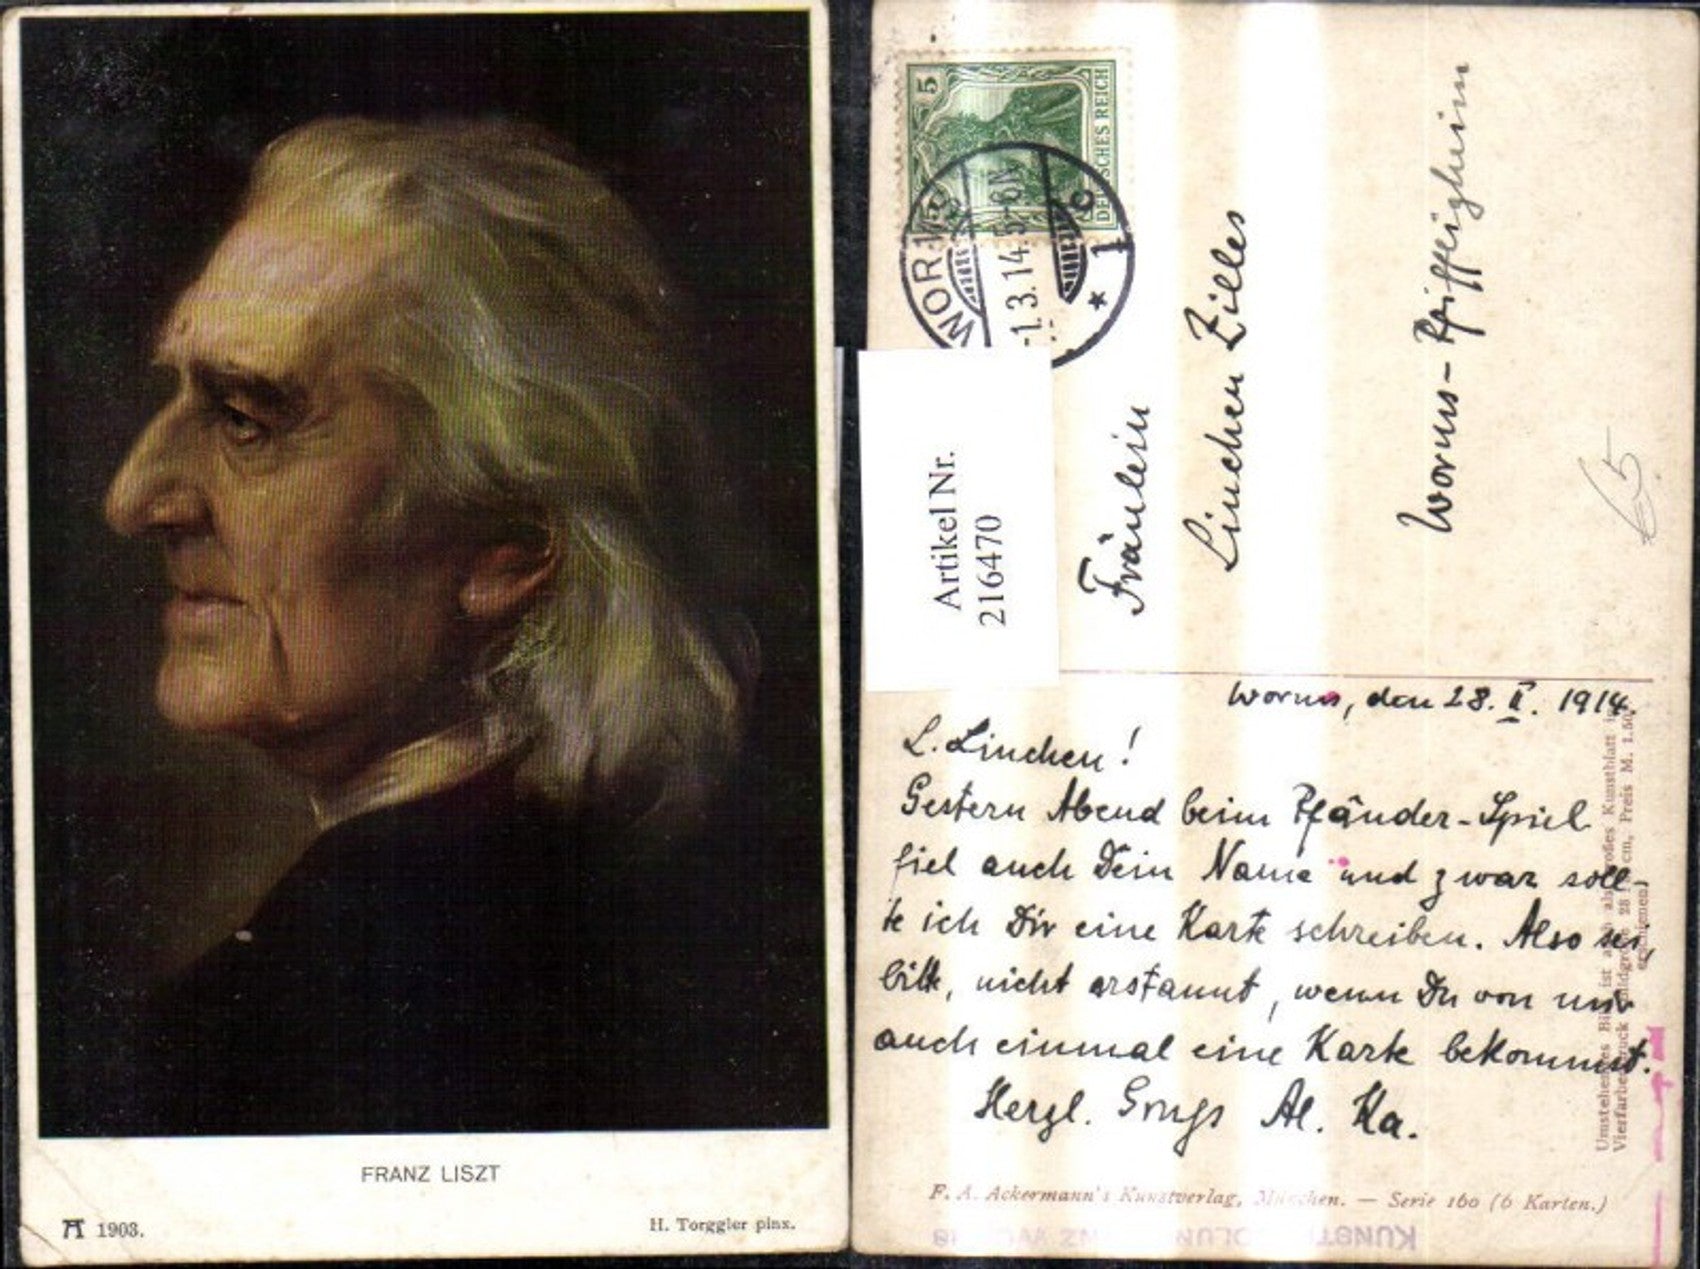 FRANZ LISZT
1903.
H. Torggler pinx.
5
DEUTSCHES REICH
WORMS
-1.3.14.5-6N
* 1 c
Artikel Nr.
216470
Fräulein
Linchen Zilles
Worms-Pfiffligheim
Worms, den 28. II. 1914.
L. Linchen!
Gestern Abend beim Pfänder-Spiel
fiel auch Dein Name und zwar soll-
te ich Dir eine Karte schreiben. Also sei,
bitte, nicht erstaunt, wenn Du von mir
auch einmal eine Karte bekommst.
Herzl. Al. Ka.
F. A. Ackermann's Kunstverlag, München. — Serie 160 (6 Karten.)
Umstehendes Bild ist als großes Kunstblatt
Vierfarbendruck 28 cm, Preis M. 1.50
erschienen.